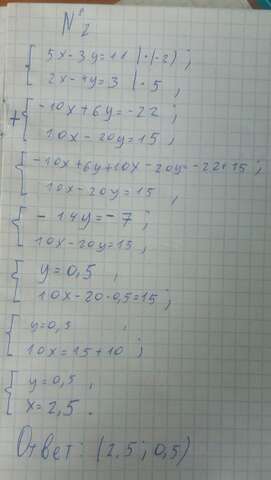 №2
5x-3y=11 |·(-2) ;
2x-4y=3 |·5 ,
+ -10x+6y=-22 ;
10x-20y=15 ;
-10x+6y+10x-20y=-22+15 ;
10x-20y=15 ,
-14y=-7 ;
10x-20y=15 ;
y=0,5 ,
10x-20·0,5=15 ;
y=0,5 ;
10x=15+10 ;
y=0,5 ,
x=2,5 .
Ответ: (2,5 ; 0,5)